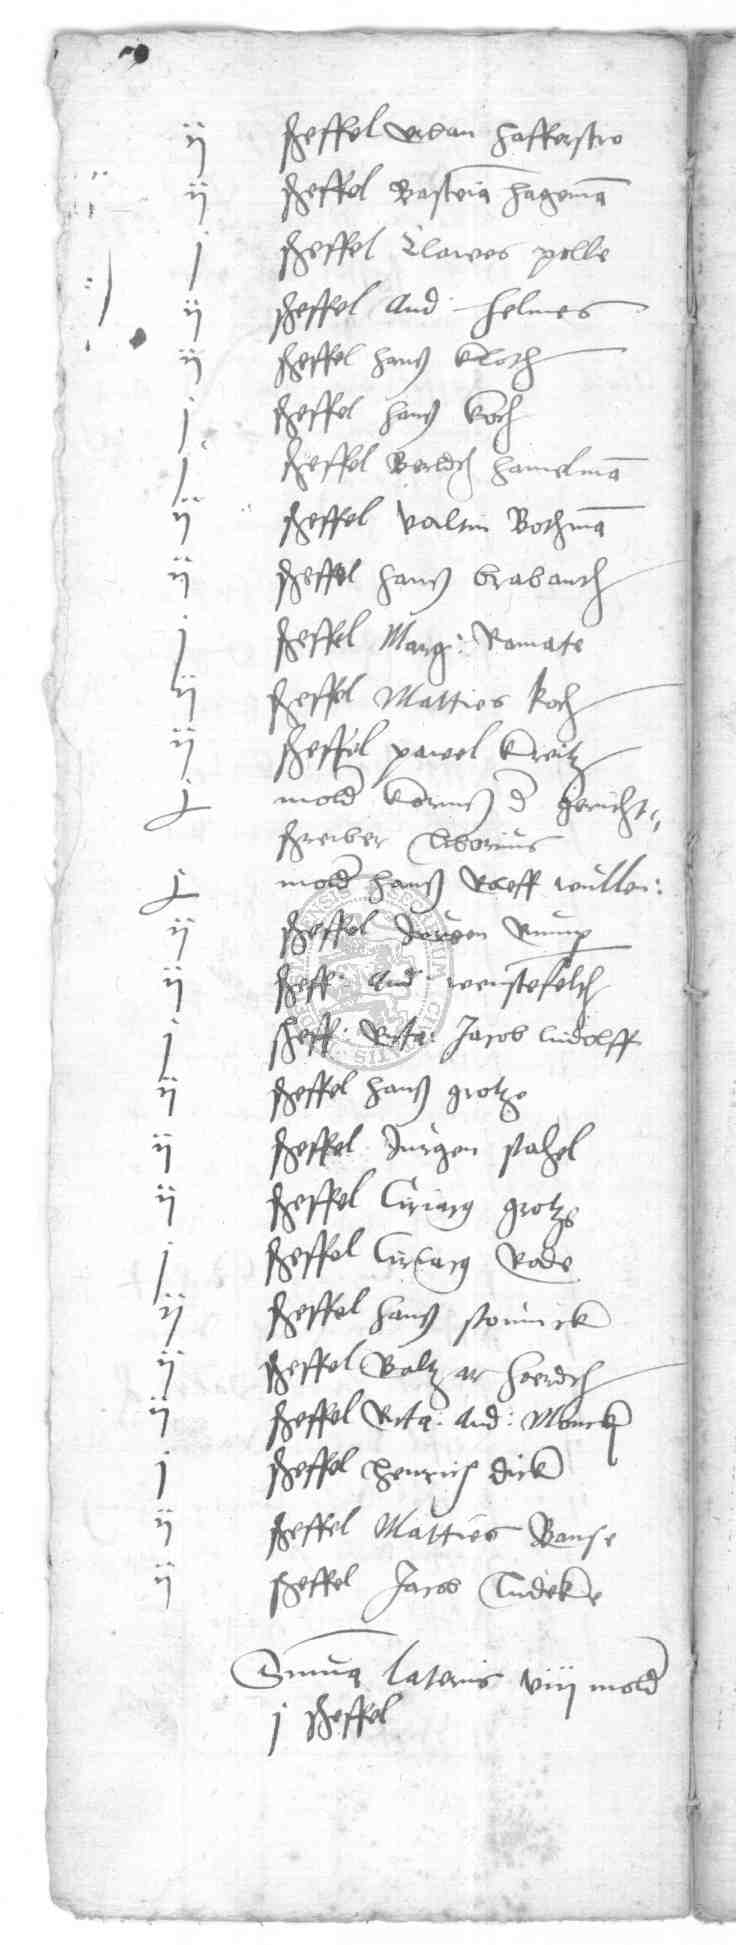 ij scheffel Urban Hafferstro
ij scheffel Bastian Hagemā
j scheffel Clawes pelle
ij scheffel And: Helmes
ij scheffel Hans Kloth
j scheffel Hans Koch
j scheffel Bertdch Hamelmā
ij scheffel Valtin Bothmā
ij scheffel Hans Brabanth
j scheffel Marg: Ramate
ij scheffel Matties Koch
ij scheffel pawel Kreitz
j mold Korns d gericht=
schreiber Liborius
j mold Hans Roleff wullen:
ij scheffel Jurgen Rump
ij scheff: And: westefelth
j scheff: Rcta: Jacob Ludolff
ij scheffel Hans grotze
ij scheffel Jurgen stahel
ij scheffel Ciriacg grotze
j scheffel Ciriacg Rode
ij scheffel Hans
ij scheffel Baltzar
ij scheffel Rcta: And: Monck
j scheffel Henrich dick
ij scheffel Matties Banse
ij scheffel Jacob Ludeke
Summa lateris viij mold
j scheffel